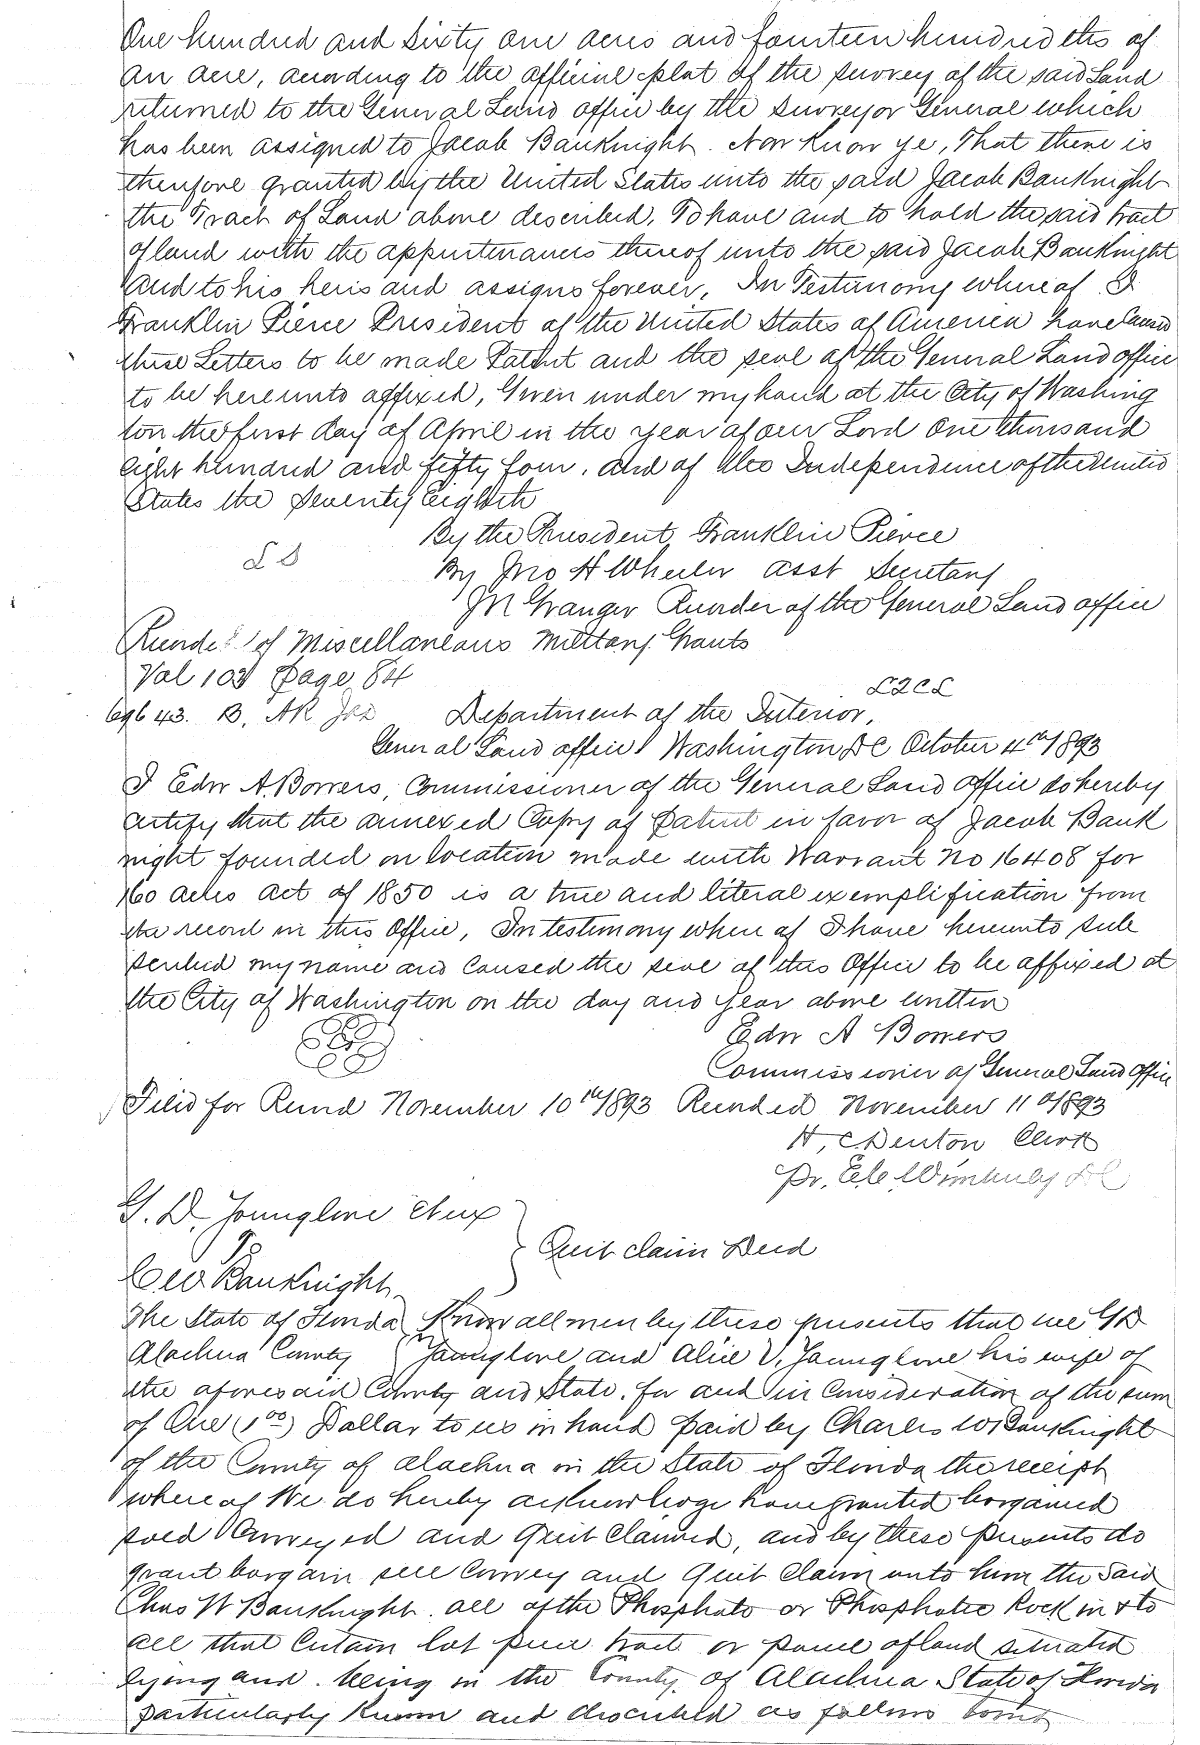 One hundred and Sixty one acres and fourteen hundredths of
an acre, according to the official plat of the survey of the said Land
returned to the General Land office by the Surveyor General which
has been assigned to Jacob Bauknight. Now Know ye, That there is
therefore granted by the United States unto the said Jacob Bauknight
the Tract of Land above described, To have and to hold the said tract
of land with the appurtenances thereof unto the said Jacob Bauknight
and to his heirs and assigns forever, In Testimony whereof I
Franklin Pierce President of the United States of America have Caused
these Letters to be made Patent and the seal of the General Land office
to be hereunto affixed, Given under my hand at the City of Washing
ton the first day of April in the year of our Lord One thousand
Eight hundred and fifty four. and of the Independence of the United
States the Seventy Eighth
By the President Franklin Pierce
L S
By Jno H Wheeler asst Secretary
J N Granger Recorder of the General Land office
Recorded of Miscellaneous Military Grants
Vol 103 Page 84
L 2 C L
69643. B.
Department of the Interior,
General Land office Washington, DC October 4th 1893
I Edw A. Bowers, Commissioner of the General Land Office do hereby
certify that the annexed Copy of Patent in favor of Jacob Bank
night founded on location made with Warrant No 16408 for
160 acres act of 1850 is a true and literal exemplification from
the record in this Office, In testimony where of I have hereunto sub
scribed my name and Caused the seal of this Office to be affixed at
the City of Washington on the day and year above written
Edw A Bowers
Commissioner of General Land Office
Filed for Record November 10th 1893 Recorded November 11th 1893
H, C Denton Clerk
Pr. E.C. Wimberly DC
G. D. Younglove et ux
To
Quit claim Deed
C W Bauknight
The State of Florida Know all men by these presents that we G D
Alachua County Younglove and Alice V. Younglove his wife of
the aforesaid County and State, for and in Consideration of the sum
of One (1 00) Dollar to us in hand paid by Charles W Bauknight
of the County of Alachua in the State of Florida the receipt
where of We do hereby acknowledge have granted bargained
sold Conveyed and Quit Claimed, and by these presents do
grant bargain sell Convey and Quit Claim unto him the said
Chas W Bauknight. all of the Phosphate or Phosphatic Rock in & to
all that Certain lot piece tract or parcel of land situated
lying and being in the County of Alachua State of Florida
particularly Known and described as follows towit